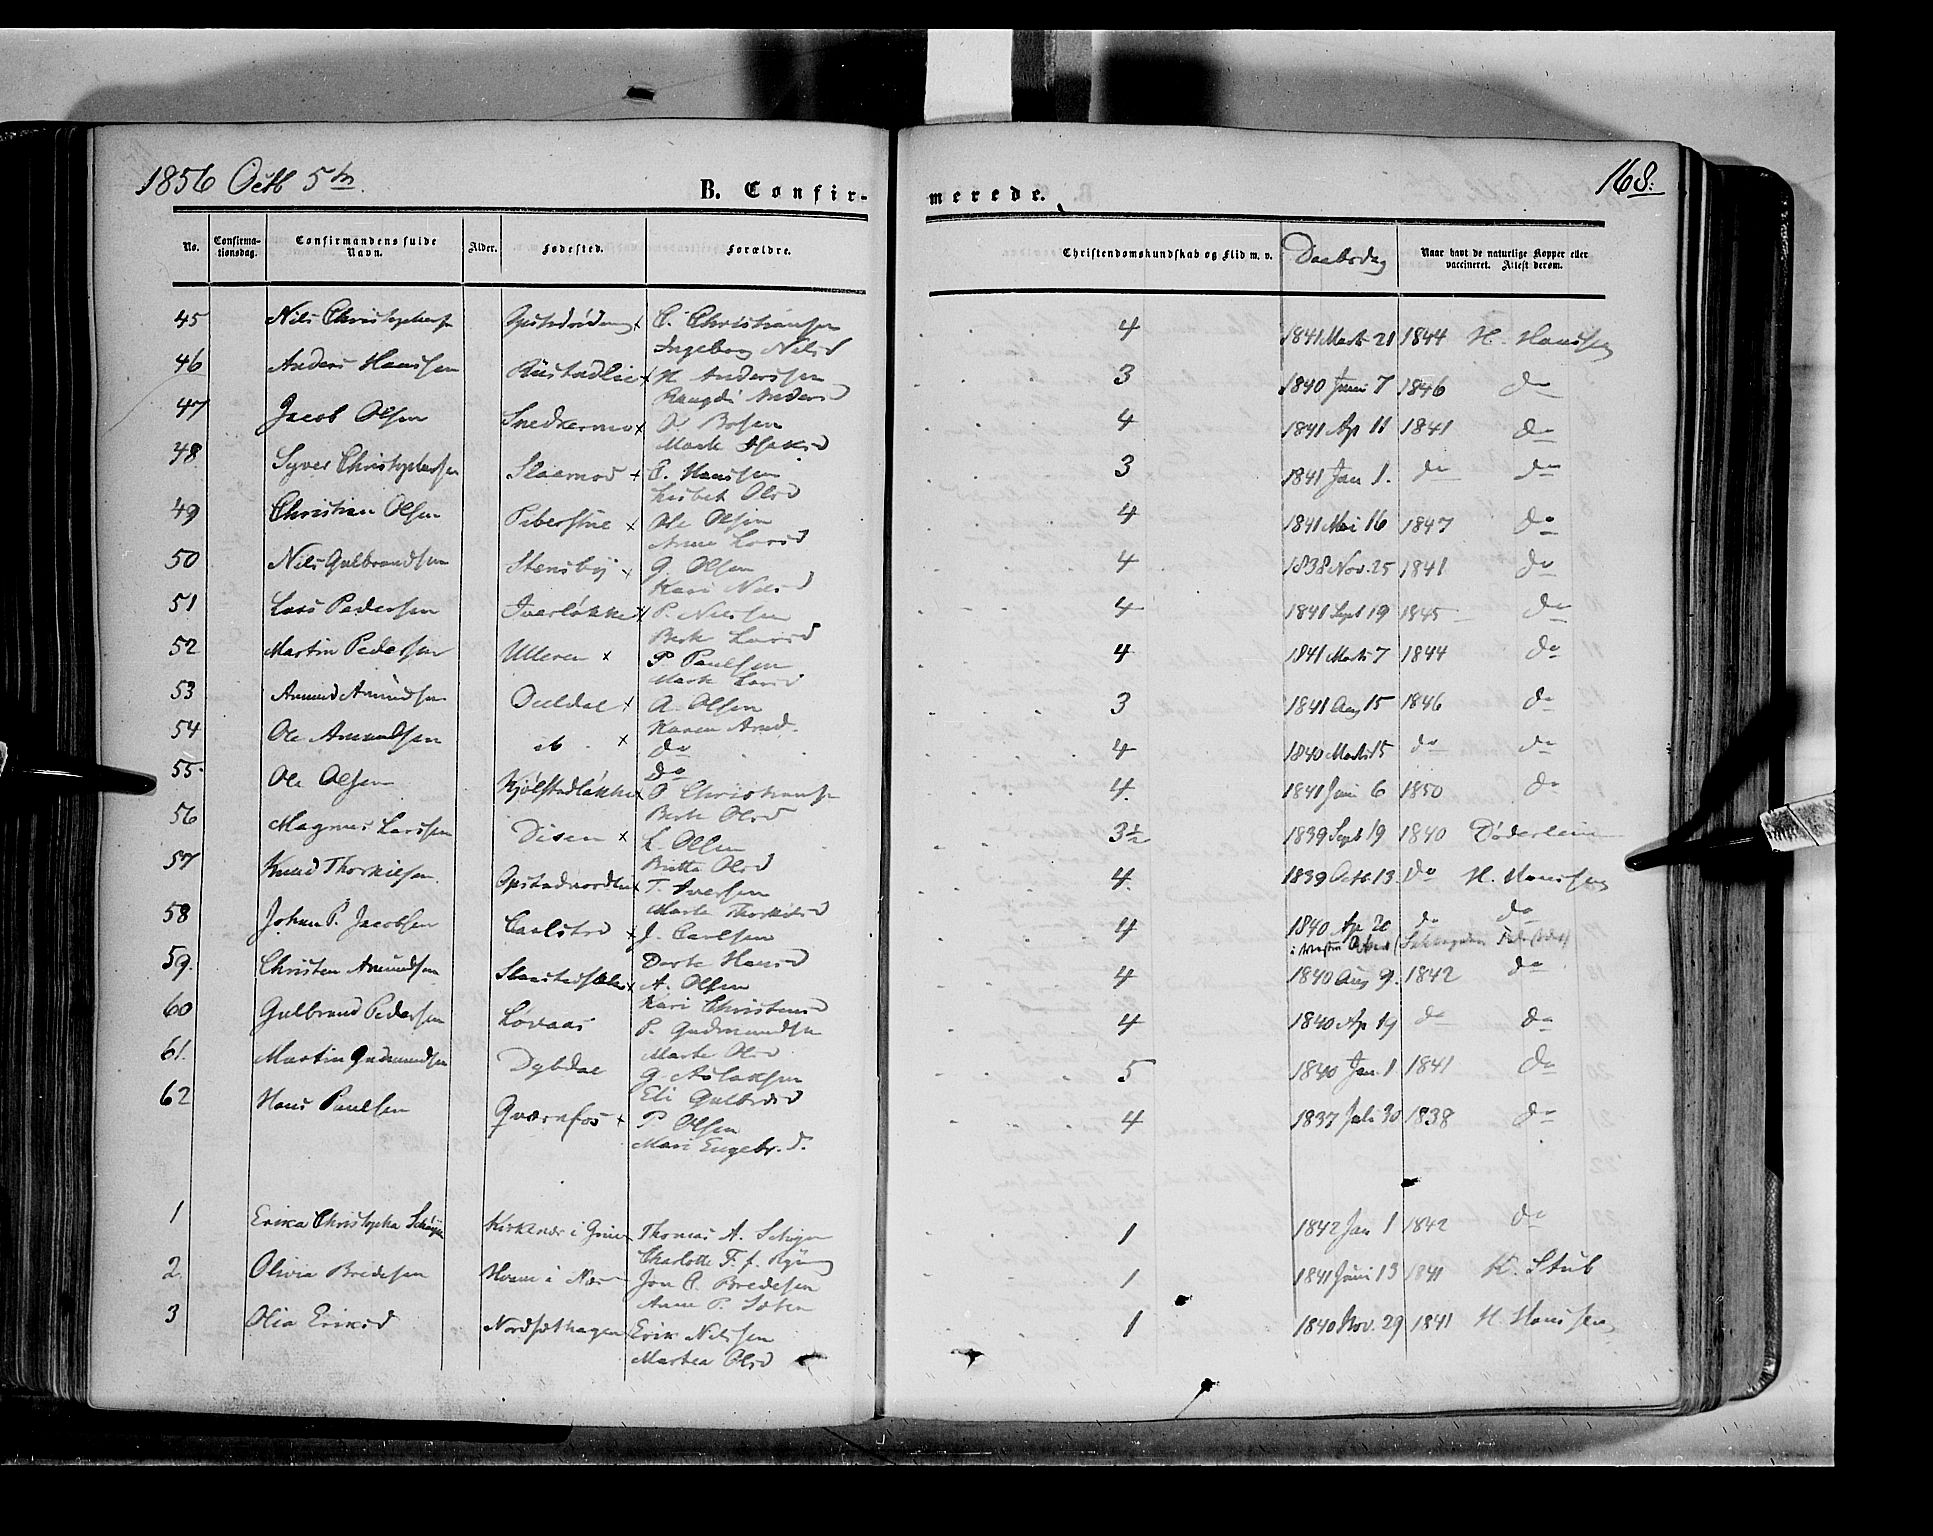 1856 Octb 5te
168.
B. Confir-
merede.
No. Confirma-tionsdag. Confirmandens fulde Navn. Alder. Fødested. Forældre. Christendomskundskab og Flid m. v. Daabsdag Naar havt de naturlige Kopper eller vaccineret. Attest derom.
45 Nils Christophersen x C. Christiansen 4 1841 Marts 21 1844 H. Hanssen
Ingeborg Nilsd
46 Anders Hanssen x H Anderssen 3 1840 Juni 7 1846 do
Andersd
47 Jacob Olsen Snedkermo x O Boesen 4 1841 Ap 11 1841 do
Marte
48 Syver Christophersen x C. Hanssen 3 1841 Jan 1. do do
Lisbet Olsd
49 Christian Olsen x Ole Olsen 4 1841 Mai 16 1847 do
Anne Larsd
50 Nils Gulbrandsen Stensby x G. Olsen 4 1838 Nov. 25 1841 do
Kari Nilsd
51 Lars Pedersen Iverløkke x P. Nilssen 4 1841 Sept 19 1845 do
Berte Larsd
52 Martin Pedersen Ulleren x P Paulsen 4 1841 Marts 7 1844 do
Marte Larsd
53 Amund Amundsen Duldal x A. Olsen 3 1841 Aug 15 1846 do
Karen Amd.
54 Ole Amundsen ib x do 4 1840 Marts 15 do do
do
55. Ole Olsen Kjølstadløkke x O Christiansen 4. 1841 Juni 6 1850 do
Berte Olsd
56 Magnus Larssen Disen x L. Olsen 3½ 1839 Sept 19 1840 Døderlein
Britta Olsd
57 Knud Thorkilsen x T. Iversen 4. 1839 Octb 13. do H. Hanssen
Marte Thorkilsd
58 Johan P. Jacobsen Carlstad x J. Carlsen 4 1840 Ap 20 do do
Dorte Hansd
59. Christen Amundsen x A. Olsen 4 1840 Aug 9. 1842 do
Kari Christensd
60 Gulbrand Pedersen Løvaas P. Gudmundsen 4 1840 Ap 19 do do
Marte Olsd
61. Martin Gudmundsen Dybdal G. Aslaksen 5 1840 Jan. 1 1841 do
Eli Gulbrd
62 Hans Paulsen Qværnfos x P Olsen 4 1837 Juli 30 1838 do
Mari Engebr. d.
1 Erika Christopha Kirkenær i Thomas A. 1 1842 Jan 1 1842 do
Charlotte F. f.
2. Olivia Bredesen i Nær Jon C. Bredesen 1 1841 Juni 13 1841 K. Stub
Anne P.
3 Olia Eriksd Nordsethagen Erik Nilssen 1 1840 Nov. 29 1841 H. Hanssen
Martea Olsd